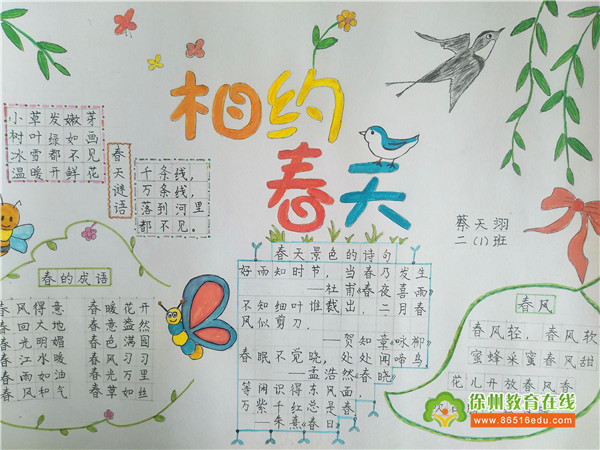 相约
春天
小草发嫩芽
树叶绿如画
冰雪都不见
温暖开鲜花
春天谜语
千条线，
万条线，
落到河里
都不见。
蔡天翊
二(1)班
春的成语
春风得意 春暖花开
春回大地 春意盎然
春光明媚 春色满园
春江水暖 春风习习
春雨如油 春光万里
春风和气 春草如丝
春天景色的诗句
好雨知时节，当春乃发生
——杜甫《春夜喜雨》
不知细叶谁裁出，二月春
风似剪刀.
——贺知章《咏柳》
春眠不觉晓，处处闻啼鸟
——孟浩然《春晓》
等闲识得东风面
万紫千红总是春
——朱熹《春
春风
春风轻，春风软
蜜蜂采蜜春风甜
花儿开放春风香
徐州教育在线
www.86516edu.com